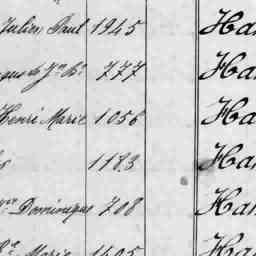 Julien Paul 1945 Ha
777 Ha
Henri Marie 1056 Ha
1183 Ha
Dominique 708 Ha
Marie 1405 Ha